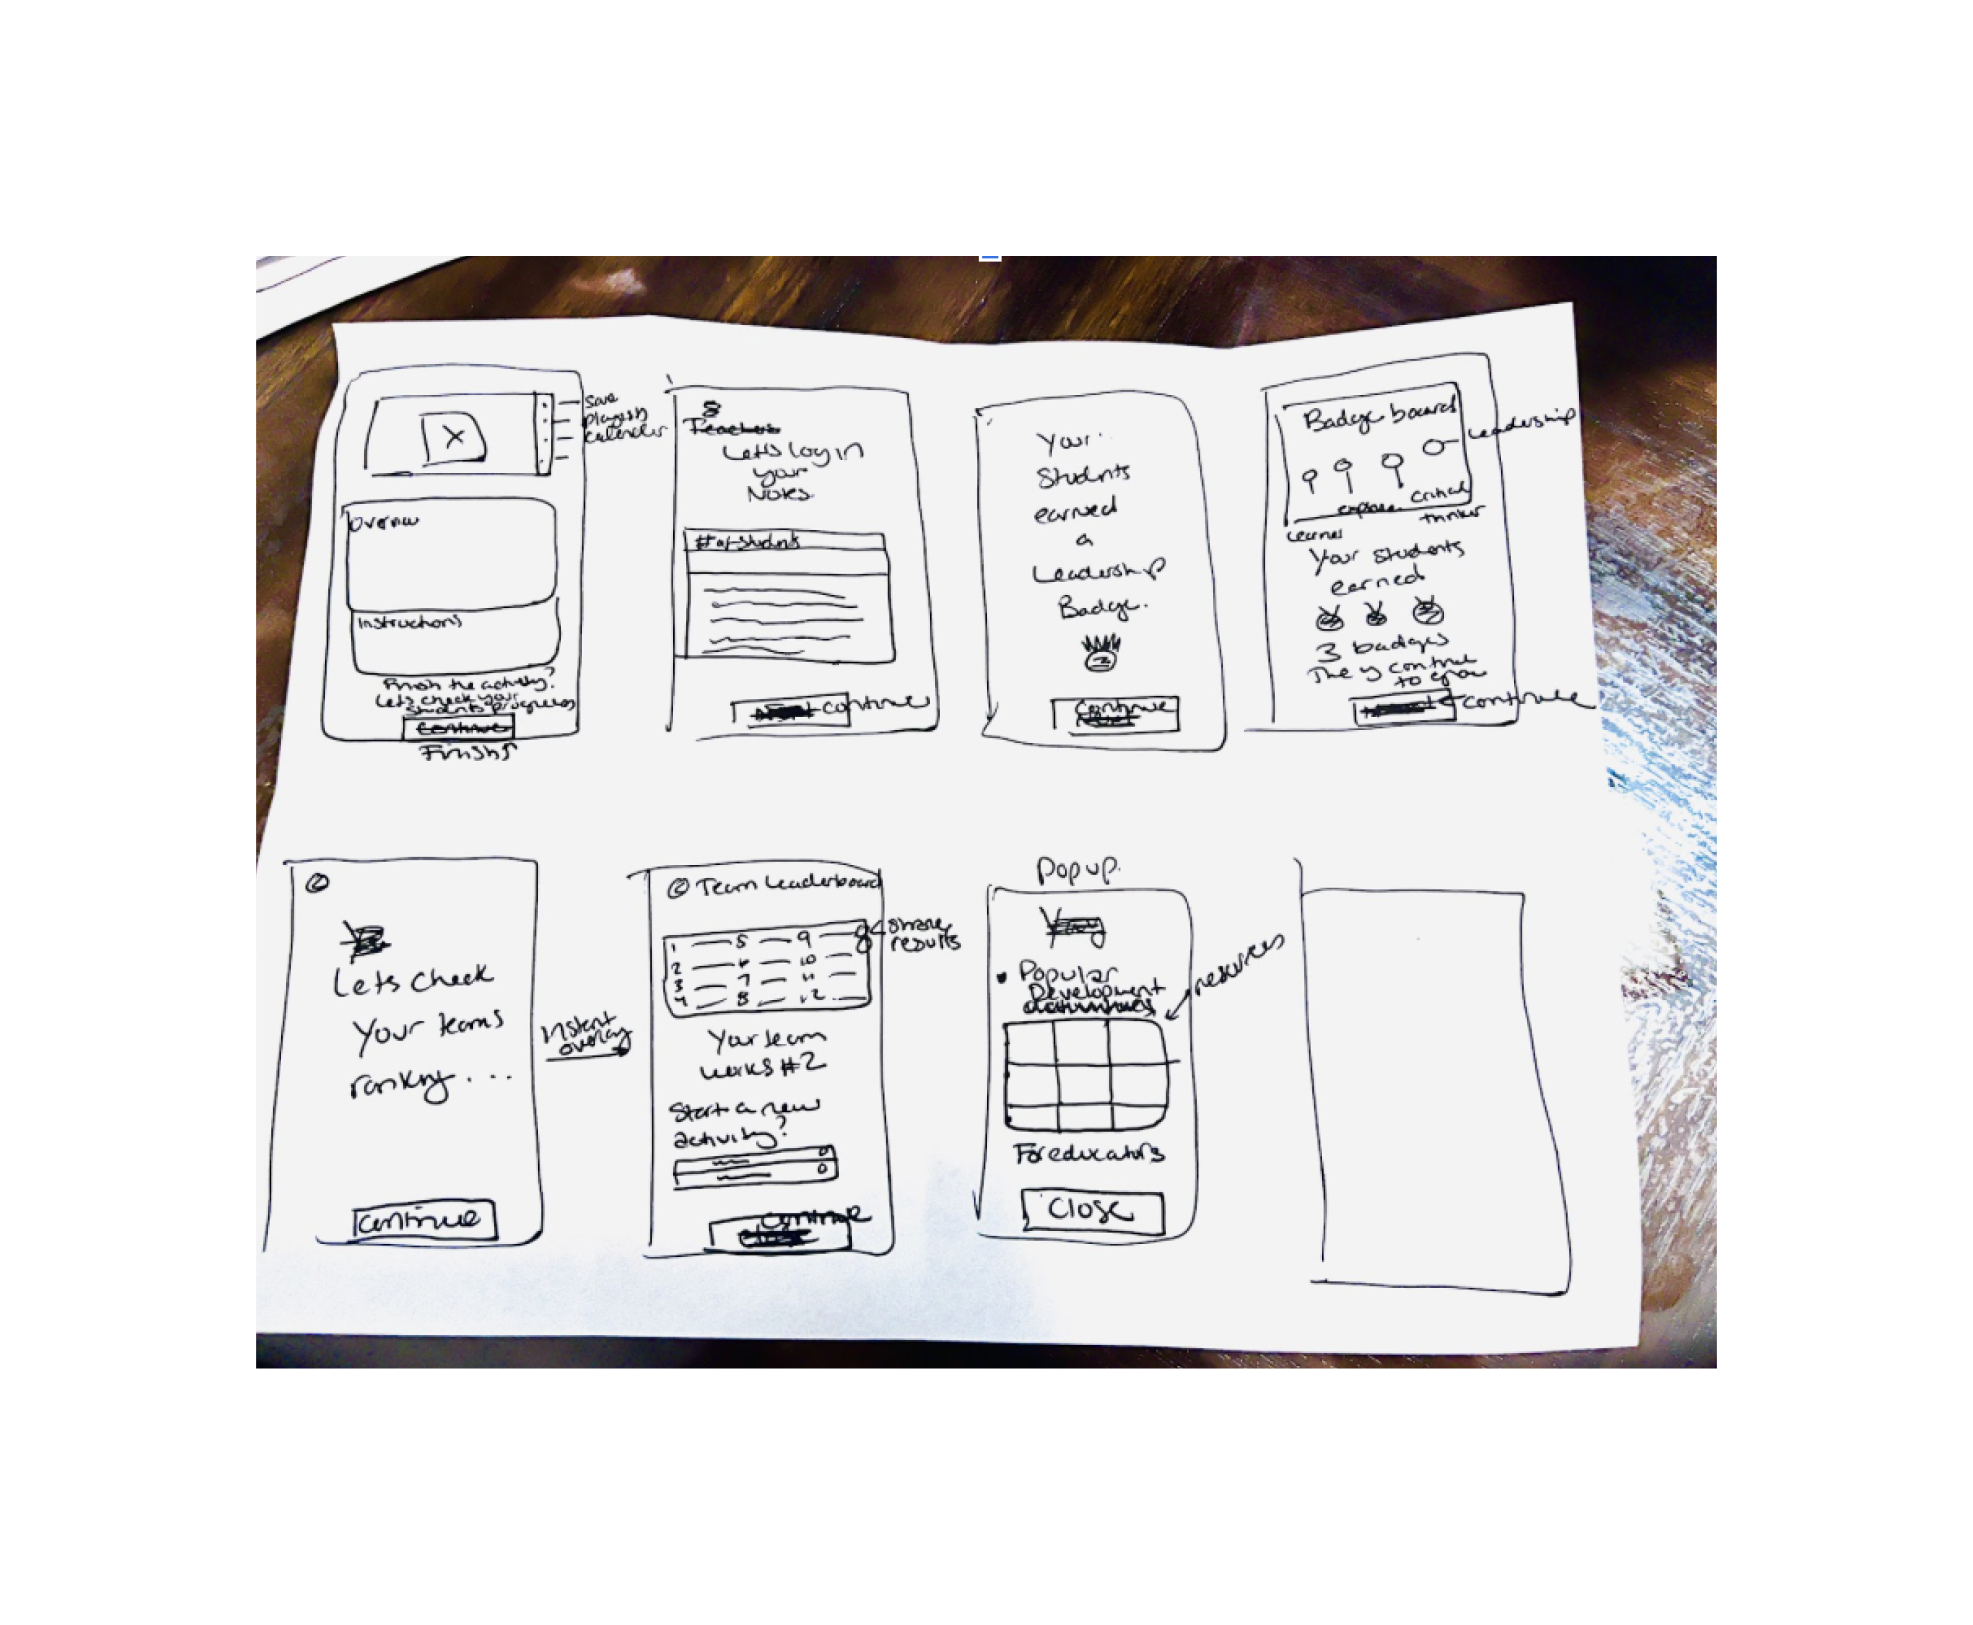 Save
playlist
calendar
Overview
Instructions
Finish the activity?
Lets check your
students progress
Continue
Finish
Teacher
Let's log in
your
Notes
# of students
continue
Your
Students
earned
a
Leadership
Badge.
Continue
Badge board
Leadership
critical
thinker
Learner
Your students
earned
3 badges
They continue
to grow
continue
Lets check
Your teams
ranking...
continue
Instant
overlay
Team Leaderboard
share
results
1 5 9
2 6 10
3 7 11
4 8 12
Your team
works #2
Start a new
activity?
continue
close
Popup
Popular
Development
resources
For educators
Close